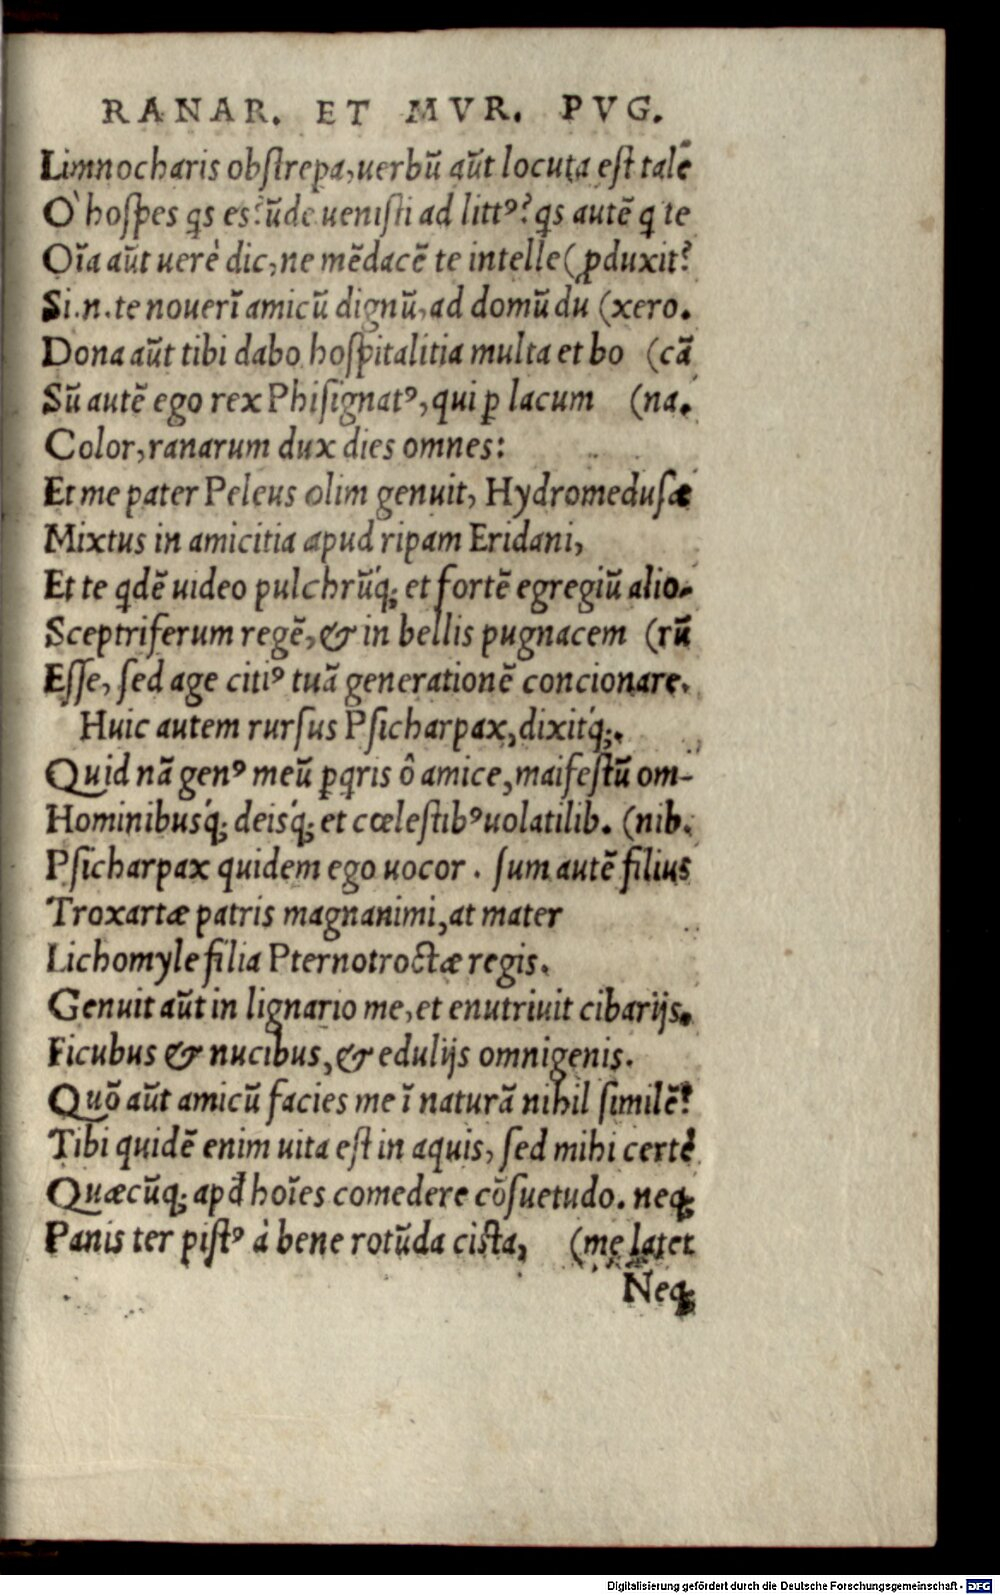 RANAR. ET MVR. PVG.
Limnocharis obſtrepa, uerbū aūt locuta eſt talē
O' hoſpes qs es? ūde ueniſti ad littꝰ? qs autē q te
Oīa aūt uerè dic, ne mēdacē te intelle (ꝓduxit?
Si.n.te nouerī amicū dignū, ad domū du (xero.
Dona aūt tibi dabo hoſpitalitia multa et bo (cā
Sū autē ego rex Phiſignatꝰ, qui ꝑ lacum (na.
Color, ranarum dux dies omnes:
Et me pater Peleus olim genuit, Hydromeduſæ
Mixtus in amicitia apud ripam Eridani,
Et te qdē uideo pulchrūq́; et fortē egregiū alio-
Sceptriferum regē, & in bellis pugnacem (rū
Eſſe, ſed age citiꝰ tuā generationē concionare.
Huic autem rurſus Pſicharpax, dixitq́;.
Quid nā genꝰ meū ꝑqris ô amice, maifeſtū om-
Hominibusq́; deisq́; et cœleſtibꝰ uolatilib. (nib.
Pſicharpax quidem ego uocor. ſum autē filius
Troxartæ patris magnanimi, at mater
Lichomyle filia Pternotroctæ regis.
Genuit aūt in lignario me, et enutriuit cibarijs.
Ficubus & nucibus, & edulijs omnigenis.
Quō aūt amicū facies me ī naturā nihil ſimilē?
Tibi quidē enim uita eſt in aquis, ſed mihi certè
Quæcūq; apđ hoīes comedere cōſuetudo. neq;
Panis ter piſtꝰ à bene rotūda ciſta, (me latet
Neq;
Digitalisierung gefördert durch die Deutsche Forschungsgemeinschaft - DFG